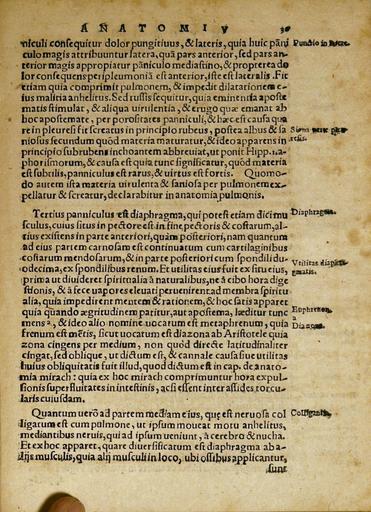 ANATOMIV 30
niculi consequitur dolor pungitiuus, & lateris, quia huic pāni
culo magis attribuuntur latera, quā pars anterior, sed pars an-
terior magis appropiatur pāniculo mediastino, & propterea do
lor consequens peripleumoniā est anterior, iste est lateralis. Fit
etiam quia comprimit pulmonem, & impedit dilatationem e-
ius malitia anhelitus. Sed tussis sequitur, quia eminentia aposte
matis stimulat, & aliqua virulentia, & erugo quæ emanat ab
hoc apostemate, per porositates panniculi, & hæc est causa qua
re in pleuresi fit screatus in principio rubeus, postea albus & sa
niosus secundum quòd materia maturatur, & ideo apparens in
principio subrubeū inchoantem abbreuiat, ut ponit Hipp. in a-
phorismorum, & causa est quia tunc significatur, quòd materia
est subtilis, panniculus est rarus, & virtus est fortis. Quomo-
do autem ista materia uirulenta & saniosa per pulmonem ex-
pellatur & screatur, declarabitur in anatomia pulmonis.
Tertius panniculus est diaphragma, qui potest etiam dici mu
sculus, cuius situs in pectore est in fine pectoris & costarum, al-
tius existens in parte anteriori, quàm posteriori, nam quantum
ad eius partem carnosam est continuatum cum cartilaginibus
costarum mendosarum, & in parte posteriori cum spondili du-
odecima, ex spondilibus renum. Et utilitas eius fuit ex situ eius,
prima ut diuideret spiritualia à naturalibus, ne à cibo hora dige
stionis, & à fece vapores eleuati peruenirent ad membra spiritu
alia, quia impedirent mentem & rationem, & hoc satis apparet
quia quando ægritudinem patitur, aut apostema, læditur tunc
mens, & ideo alio nomine uocatum est metaphrenum, quia
frenum est mētis, sicut uocatum est diazona ab Aristotele quia
zona cingens per medium, non quòd directe latitudinaliter
cingat, sed oblique, ut dictum est, & cannale causa siue utilitas
huius obliquitatis fuit illud, quod dictum est in cap. de anato-
mia mirach: quia ex hoc mirach comprimuntur hora expul-
sionis superfluitates in intestinis, acsi essent inter assides torcu-
laris cuiusdam.
Quantum uerò ad partem mediam eius, quę est neruosa col
ligatum est cum pulmone, ut ipsum moueat motu anhelitus,
mediantibus neruis, qui ad ipsum ueniunt, à cerebro & nucha.
Et ex hoc apparet, quare diuersificatum est diaphragma ab a-
lijs musculis, quia alij musculi in loco, ubi ossibus applicantur,
sunt
Punctio in latere.
Diaphragma.
Vtilitas diaphragmatis.
Colligantia.